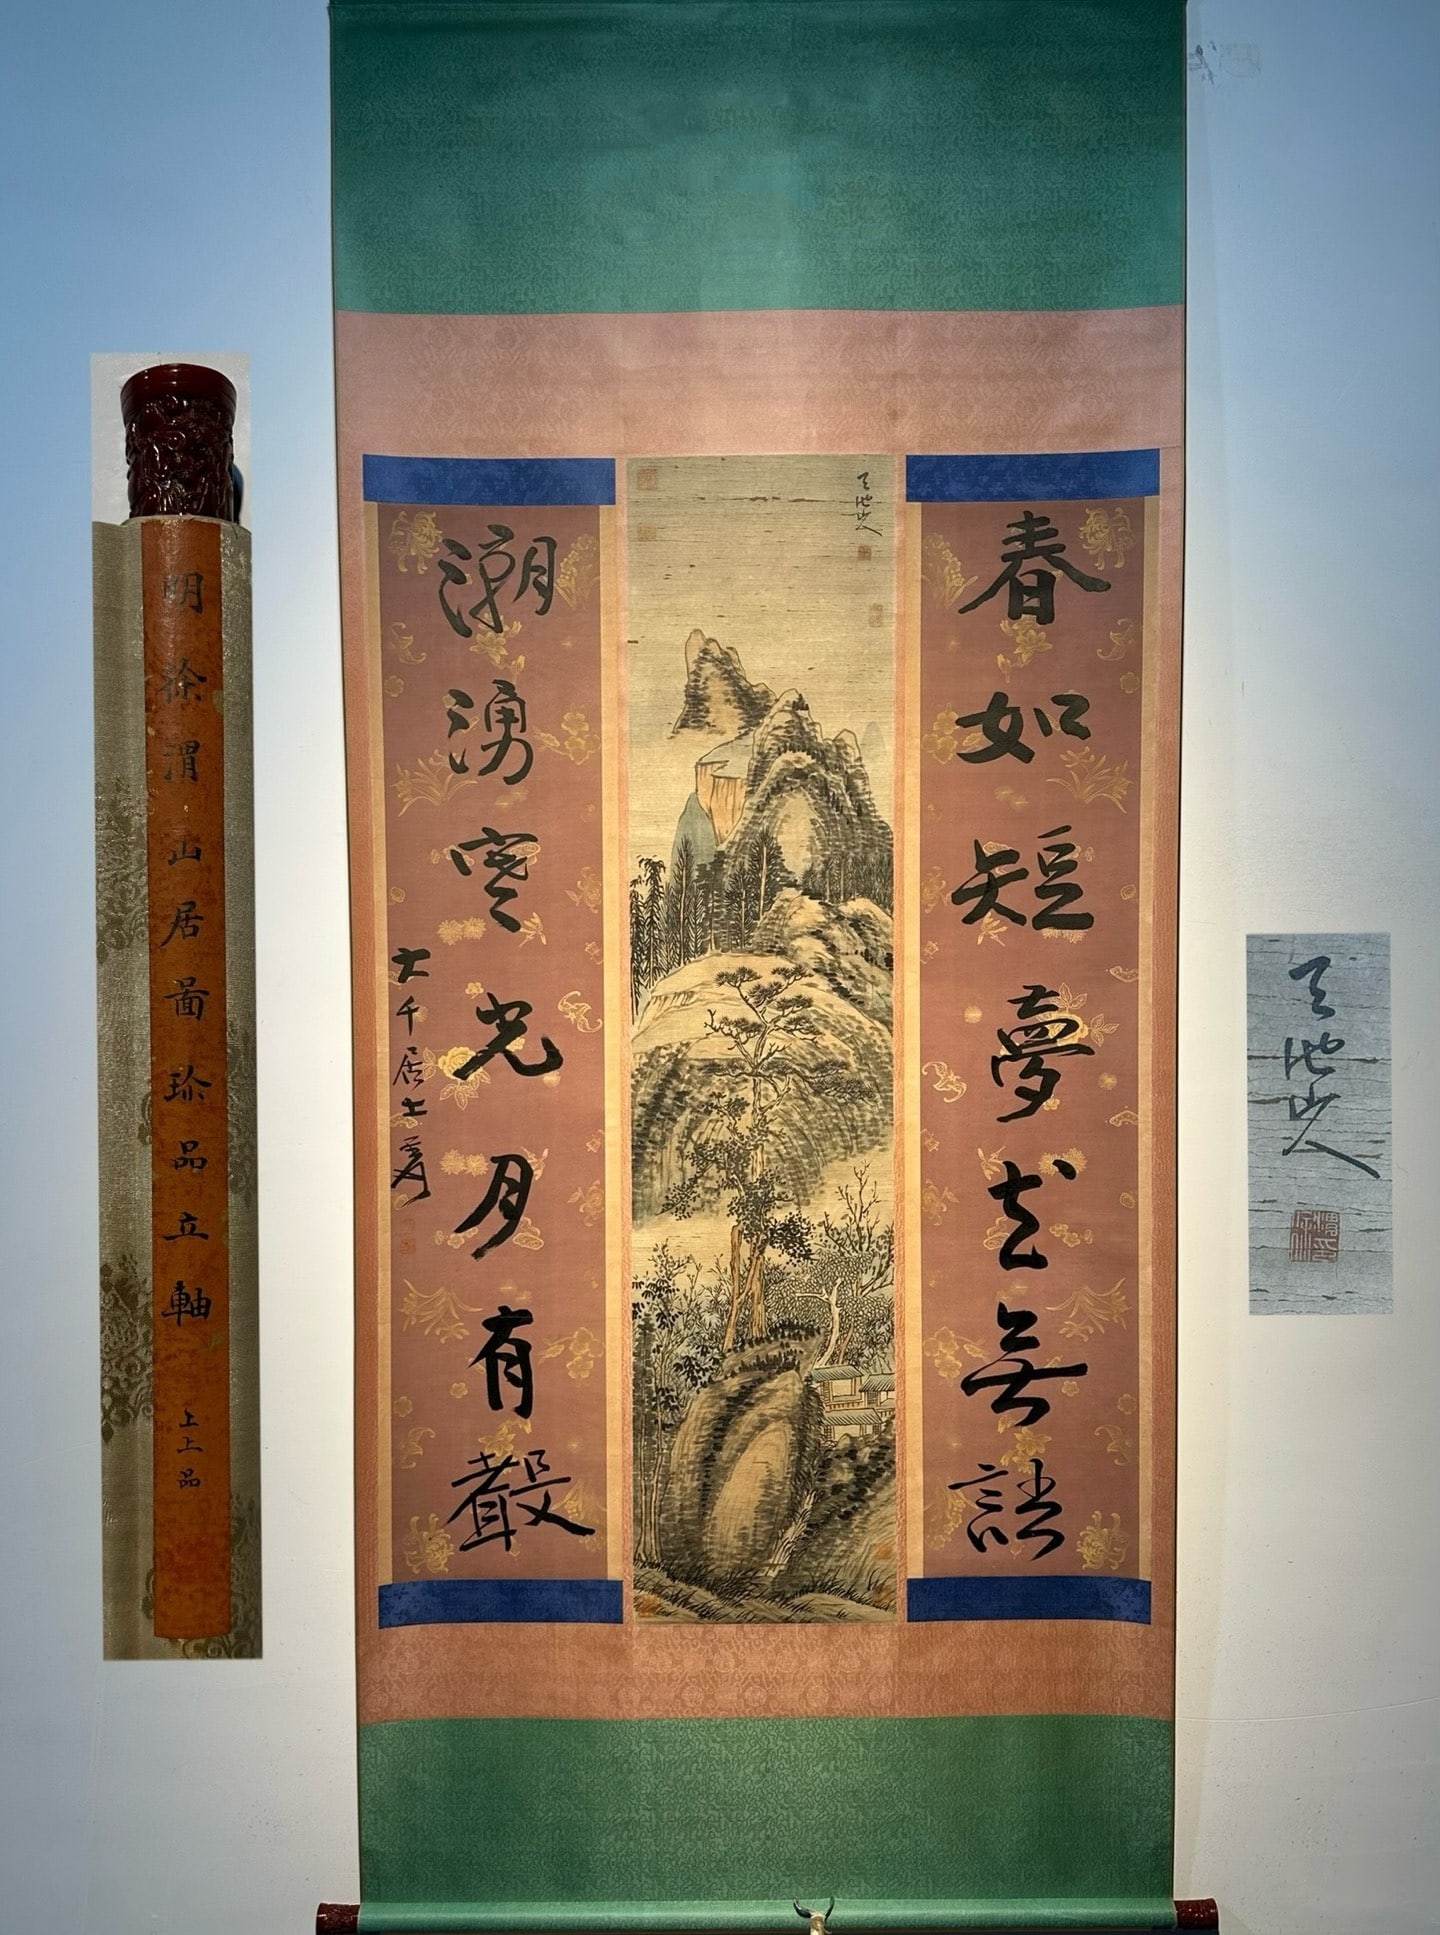 明徐渭山居啚珎品立軸
上上品
春如短夢花無語
潮湧寒光月有聲
大千居士爰
天池山人
天池山人